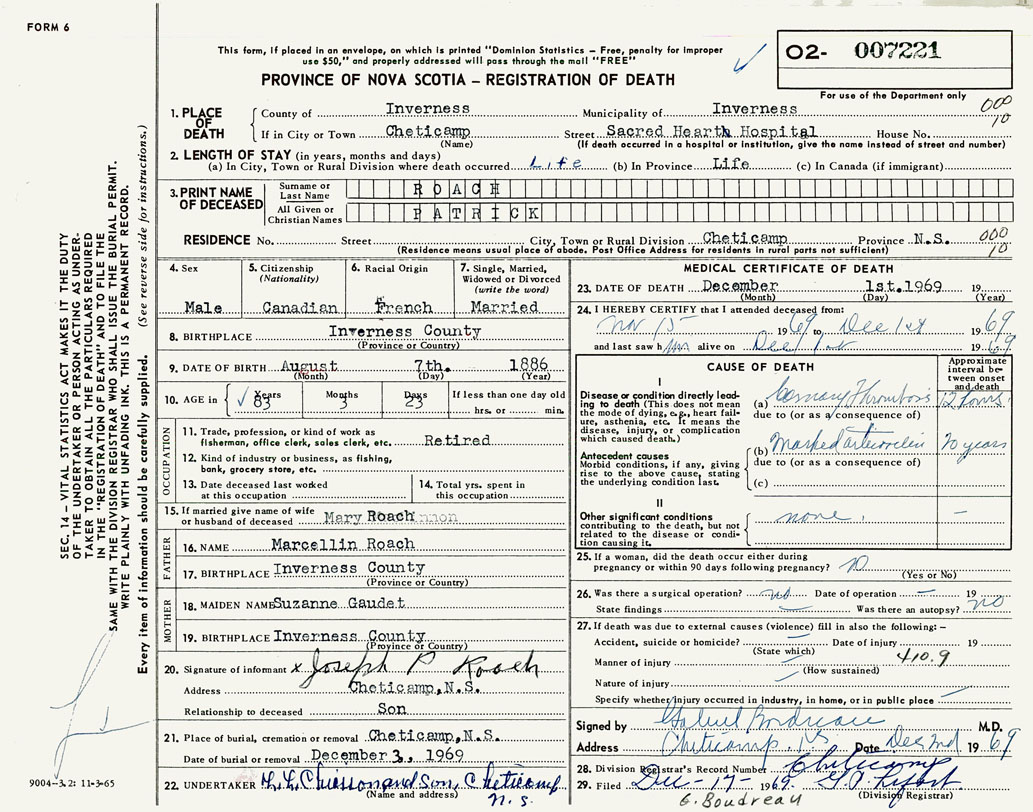 FORM 6
This form, if placed in an envelope, on which is printed "Dominion Statistics – Free, penalty for improper
use $50," and properly addressed will pass through the mail "FREE"
PROVINCE OF NOVA SCOTIA – REGISTRATION OF DEATH
O2- 007221
For use of the Department only
000
10
1. PLACE OF DEATH
County of Inverness Municipality of Inverness
If in City or Town Cheticamp Street Sacred Hearth Hospital House No.
(Name) (If death occurred in a hospital or institution, give the name instead of street and number)
2. LENGTH OF STAY (in years, months and days)
(a) In City, Town or Rural Division where death occurred Life (b) In Province Life (c) In Canada (if immigrant)
3. PRINT NAME OF DECEASED
Surname or Last Name ROACH
All Given or Christian Names PATRICK
RESIDENCE No. Street City, Town or Rural Division Cheticamp Province N.S.
000
10
(Residence means usual place of abode. Post Office Address for residents in rural parts not sufficient)
4. Sex Male
5. Citizenship (Nationality) Canadian
6. Racial Origin French
7. Single, Married, Widowed or Divorced (write the word) Married
8. BIRTHPLACE Inverness County
(Province or Country)
9. DATE OF BIRTH August 7th. 1886
(Month) (Day) (Year)
10. AGE in Years 83 Months 3 Days 23 If less than one day old
hrs. or min.
OCCUPATION
11. Trade, profession, or kind of work as
fisherman, office clerk, sales clerk, etc. Retired
12. Kind of industry or business, as fishing,
bank, grocery store, etc.
13. Date deceased last worked
at this occupation
14. Total yrs. spent in
this occupation
15. If married give name of wife
or husband of deceased Mary Roach
FATHER
16. NAME Marcellin Roach
17. BIRTHPLACE Inverness County
(Province or Country)
MOTHER
18. MAIDEN NAME Suzanne Gaudet
19. BIRTHPLACE Inverness County
(Province or Country)
20. Signature of informant x Joseph P Roach
Address Cheticamp, N.S.
Relationship to deceased Son
21. Place of burial, cremation or removal Cheticamp, N.S.
Date of burial or removal December 3, 1969
22. UNDERTAKER Chiasson and Son, Cheticamp
(Name and address) N.S.
MEDICAL CERTIFICATE OF DEATH
23. DATE OF DEATH December 1st. 1969 19
(Month) (Day) (Year)
24. I HEREBY CERTIFY that I attended deceased from:
Nov 15 1969 to Dec 1st 1969
and last saw him alive on Dec 1st 1969
CAUSE OF DEATH
Approximate interval between onset and death
I
Disease or condition directly leading to death (This does not mean the mode of dying, e.g., heart failure, asthenia, etc. It means the disease, injury, or complication which caused death.)
(a) Coronary Thrombosis 12 hours
due to (or as a consequence of)
Antecedent causes
Morbid conditions, if any, giving rise to the above cause, stating the underlying condition last.
(b) Marked 20 years
due to (or as a consequence of)
(c)
II
Other significant conditions
contributing to the death, but not related to the disease or condition causing it.
none. –
25. If a woman, did the death occur either during
pregnancy or within 90 days following pregnancy?
(Yes or No)
26. Was there a surgical operation? no Date of operation – 19
State findings – Was there an autopsy? no
27. If death was due to external causes (violence) fill in also the following: –
Accident, suicide or homicide? Date of injury 19
(State which)
Manner of injury 410.9
(How sustained)
Nature of injury
Specify whether injury occurred in industry, in home, or in public place
Signed by Gabriel Boudreau M.D.
Address Cheticamp NS Date Dec 2nd 1969
28. Division Registrar's Record Number Cheticamp
29. Filed Dec-17- 1969
(Division Registrar)
G. Boudreau
SEC. 14 – VITAL STATISTICS ACT MAKES IT THE DUTY
OF THE UNDERTAKER OR PERSON ACTING AS UNDER-
TAKER TO OBTAIN ALL THE PARTICULARS REQUIRED
IN THE "REGISTRATION OF DEATH" AND TO FILE THE
SAME WITH THE DIVISION REGISTRAR WHO SHALL ISSUE THE BURIAL PERMIT.
WRITE PLAINLY WITH UNFADING INK. THIS IS A PERMANENT RECORD.
Every item of information should be carefully supplied. (See reverse side for instructions.)
9004-3.2: 11-3-65